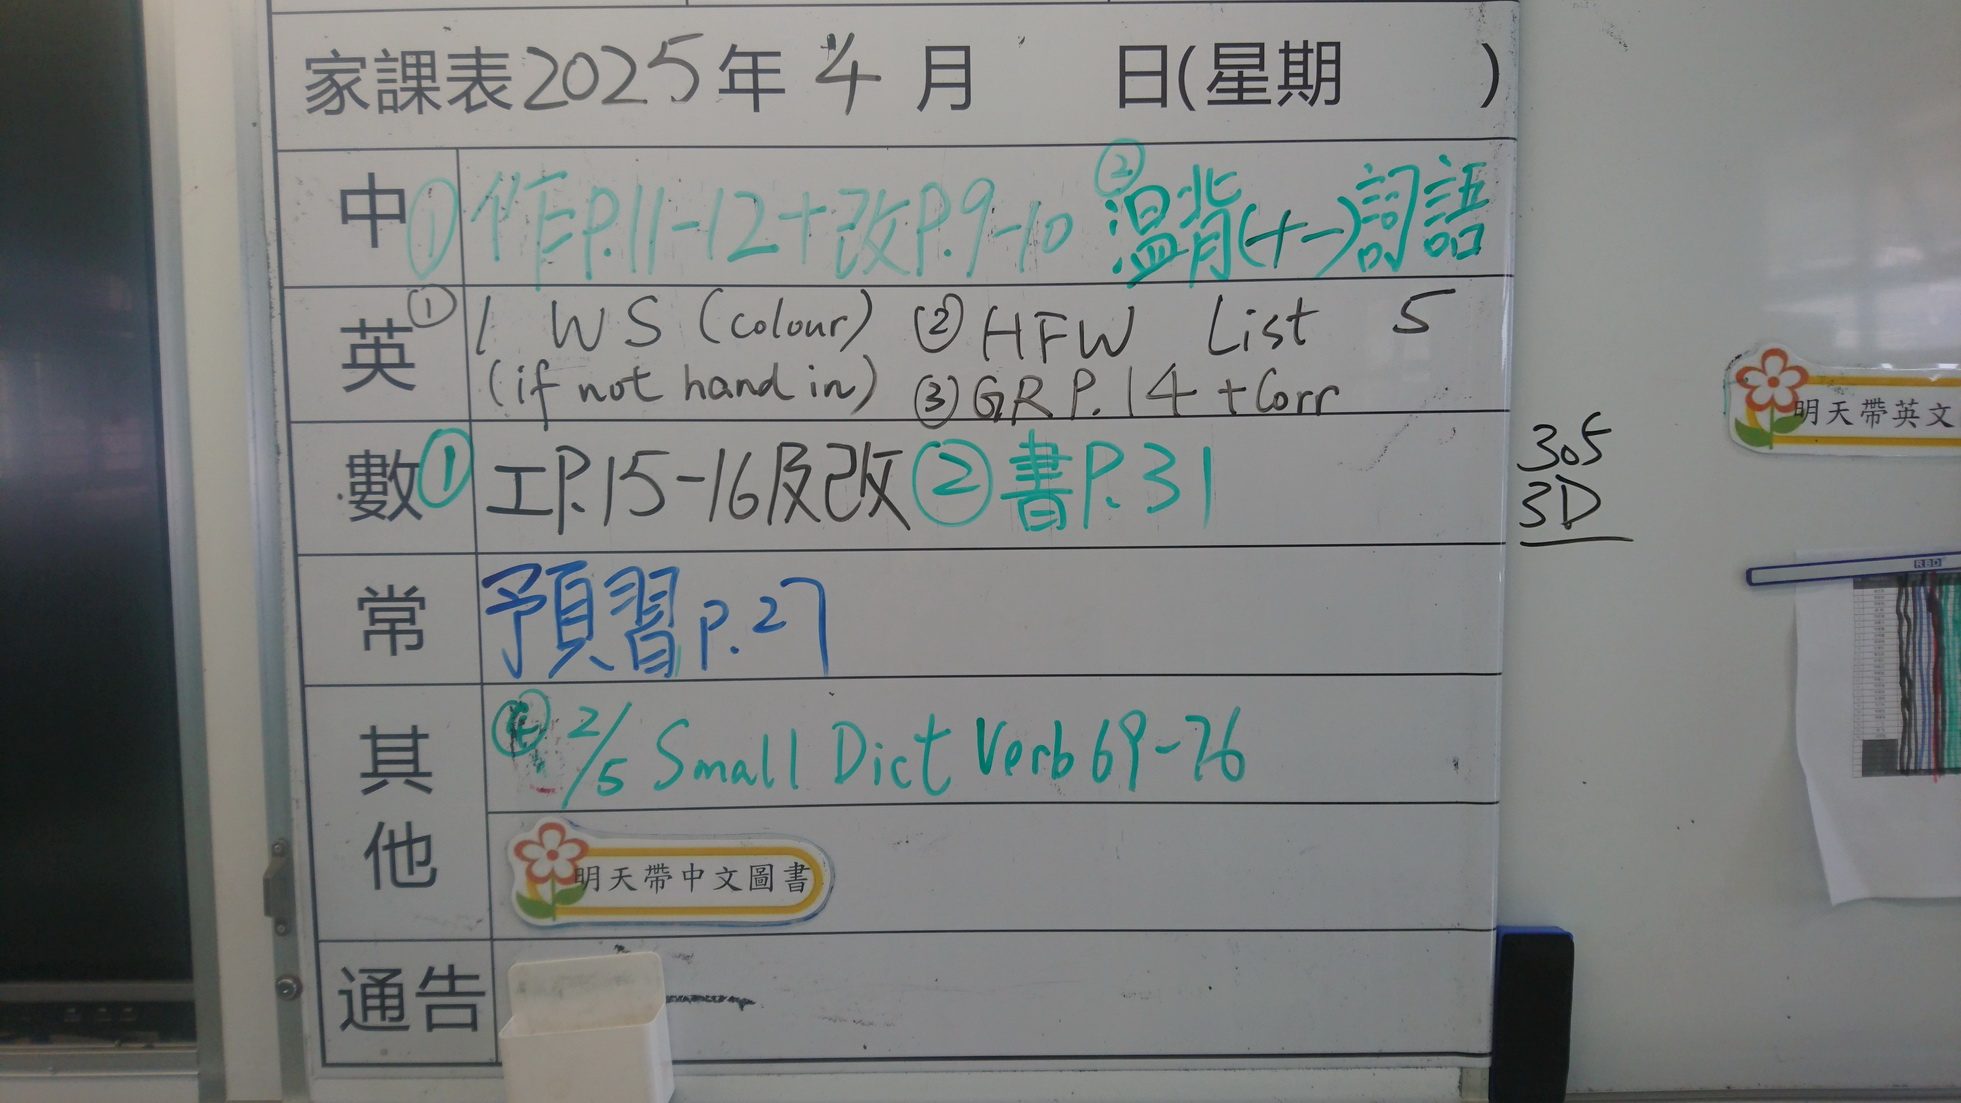 家課表2025年4月 日(星期 )
中 ① 作P.11-12+改P.9-10 ② 溫背(十一)詞語
英 ① 1 WS (colour) ② HFW List 5
(if not hand in) ③ GR P.14 + Corr
數 ① 工P.15-16及改 ② 書P.31
常 預習 P.27
其他 2/5 Small Dict Verb 69-76
明天帶中文圖書
通告
305
3D
明天帶英文
RBD